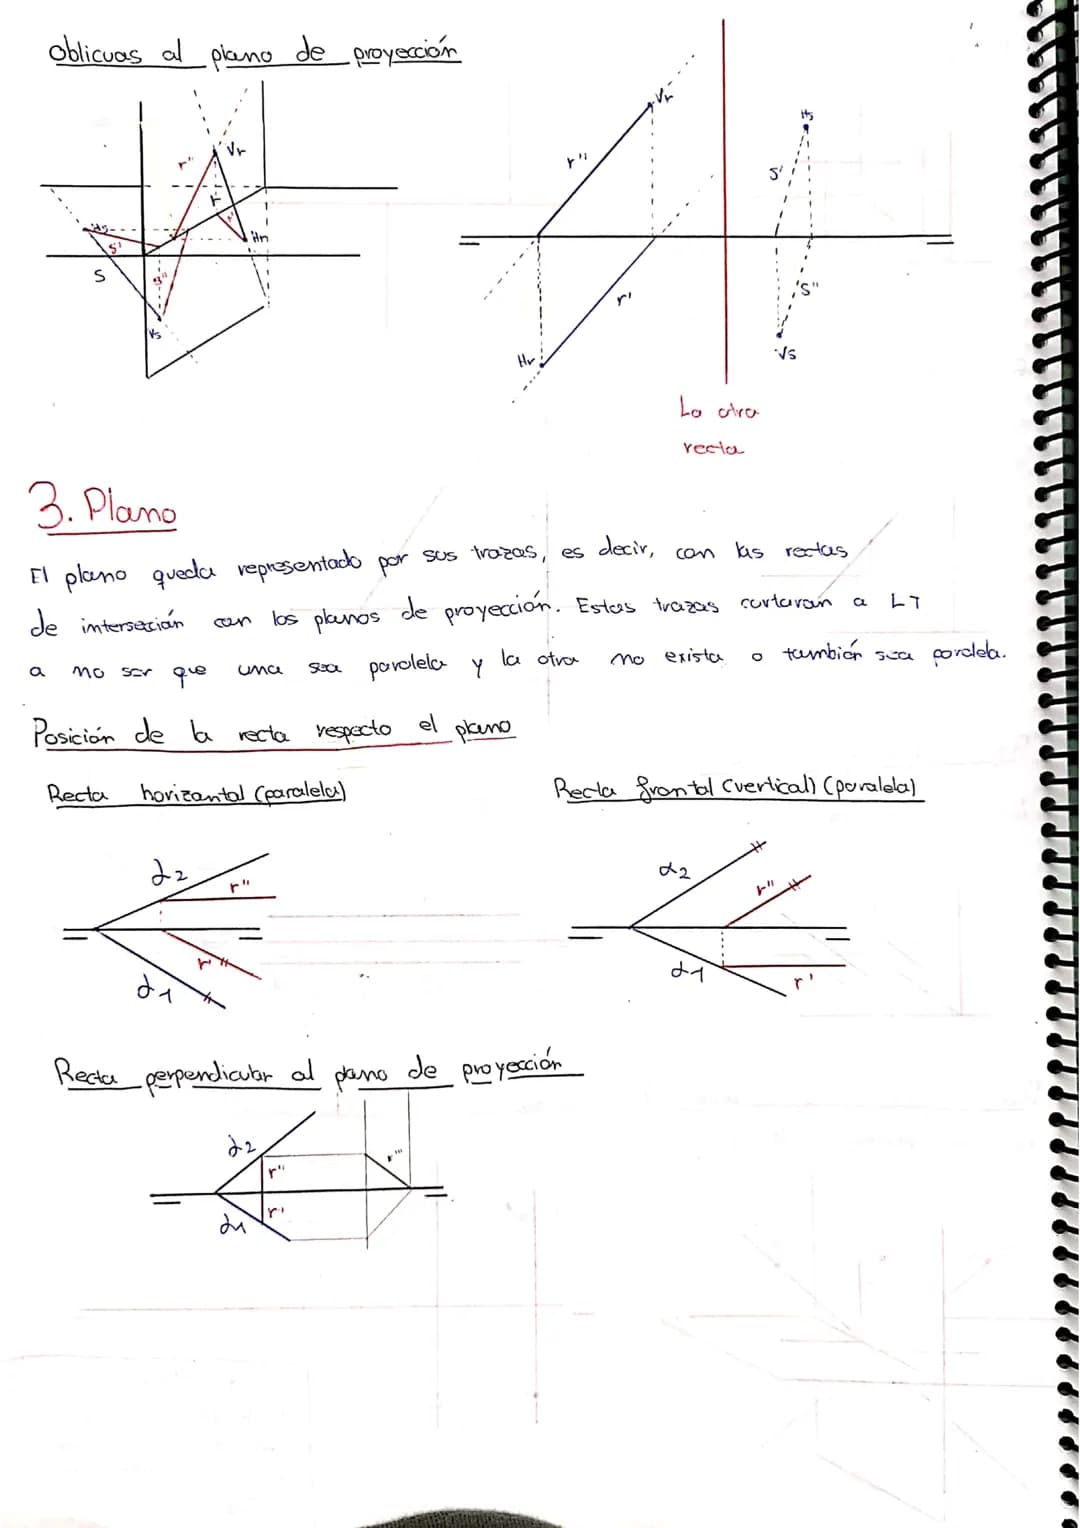 Oblicuas al plano de proyección
r"
Vr
r
r'
Hr
Hs
s'
s
s"
Vs
Vr
r"
r'
Hr
Hs
s'
s"
Vs
La otra
recta
3. Plano
El plano queda representado por sus trazas, es decir, con las rectas
de intersección con los planos de proyección. Estas trazas cortaran a LT
a no ser que una sea paralela y la otra no exista o también sea paralela.
Posición de la recta respecto el plano
Recta horizontal (paralela)
Recta frontal (vertical) (paralela)
α2
r"
r'
α1
α2
r"
α1
r'
Recta perpendicular al plano de proyección
α2
r"
r'''
r'
α1